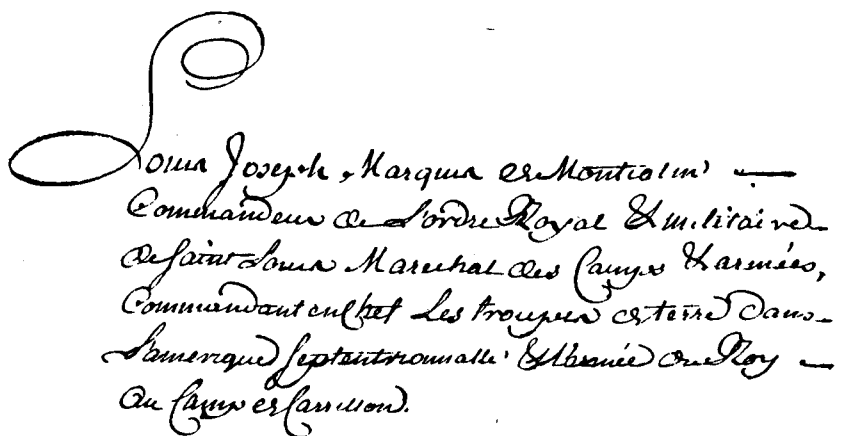 Louis Joseph, Marquis de Montcalm —
Commandeur de L'ordre Royal & militaire
de saint Louis Marechal des Camps & armées,
Commandant en chef Les troupes de terre dans
L'amerique septentrionnalle & L'armée du Roy —
au Camp de Carillon.